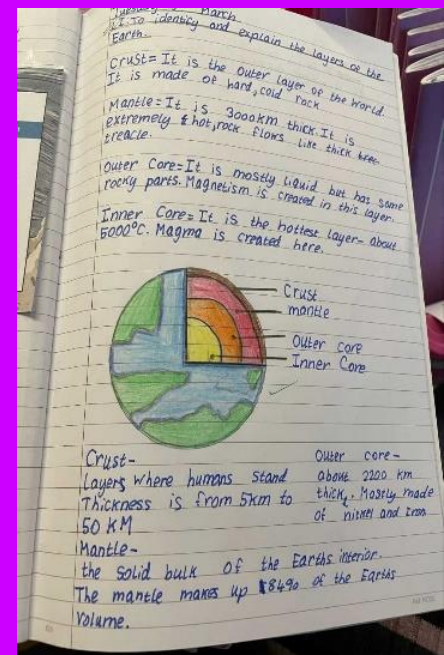 Tuesday March
L.I. To identify and explain the layers of the
Earth.
Crust= It is the outer layer of the world.
It is made of hard, cold rock
Mantle= It is 3000km thick. It is
extremely hot, rock flows like thick
treacle.
Outer Core= It is mostly liquid but has some
rocky parts. Magnetism is created in this layer.
Inner Core= It is the hottest layer- about
5000°C. Magma is created here.
Crust
mantle
Outer core
Inner Core
Crust-
Layers where humans stand
Thickness is from 5km to
50 KM
Mantle-
the solid bulk of the Earths interior.
The mantle makes up 84% of the Earths
Volume.
Outer core-
about 2200 km
thick. Mostly made
of nickel and Iron